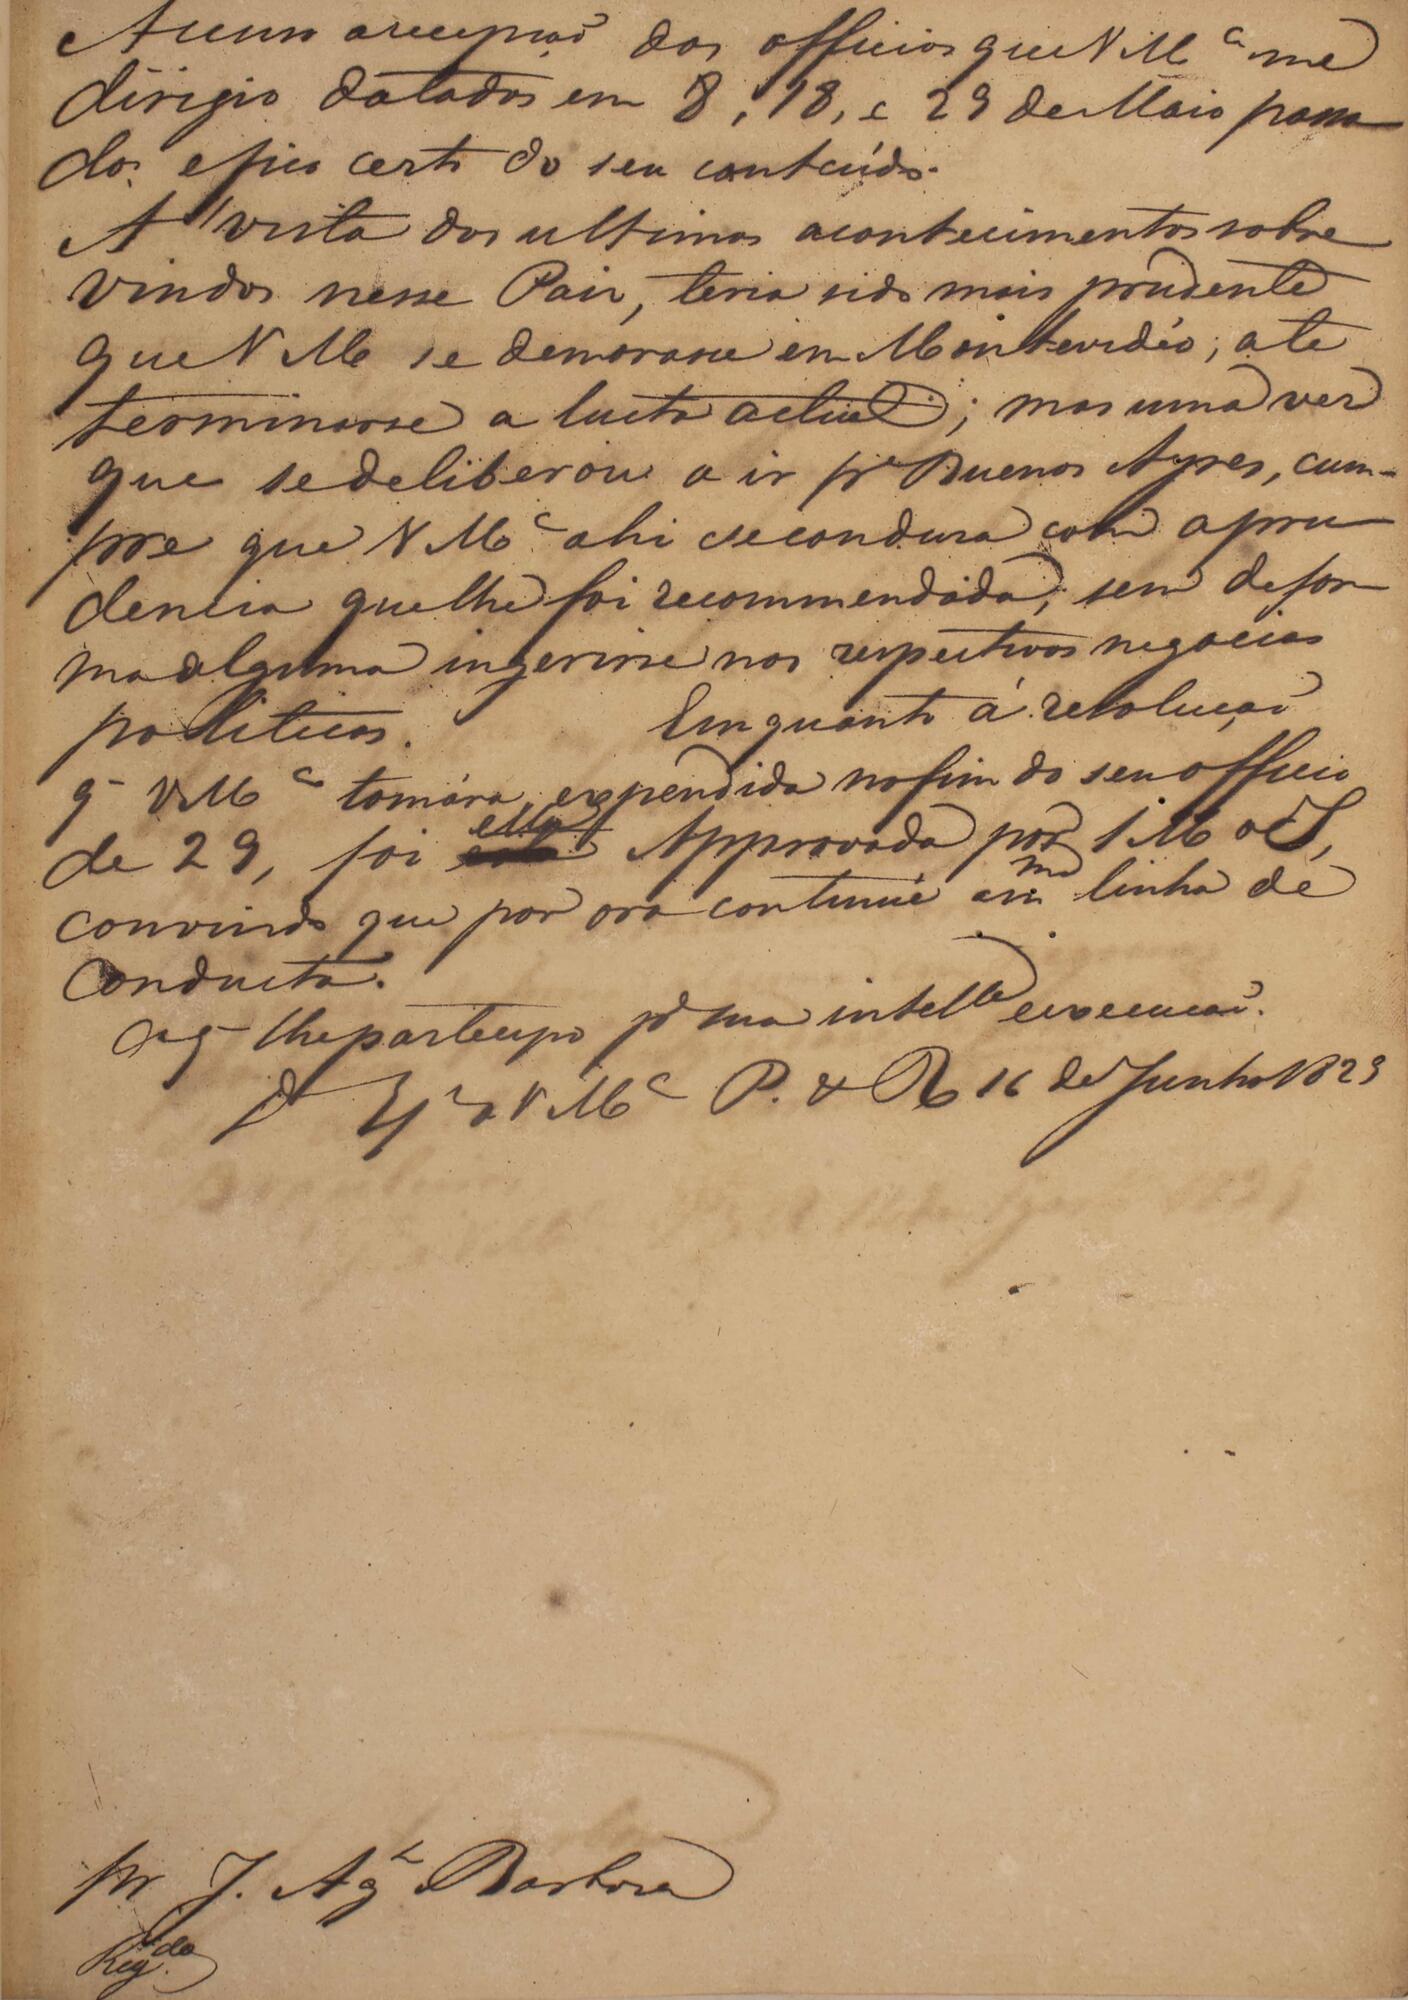 Accuso a recepção dos officios que V M.ce me
dirigio datados em 8, 18, e 29 de Maio passa
do, e fico certo do seu conteúdo.
A' vista dos ultimos acontecimentos sobre
vindos nesse Paiz, teria sido mais prudente
que V M se demorasse em Montevidéo, ate
terminarse a lucta actual; mas uma vez
que se deliberou a ir pa Buenos Ayres, cum-
pre que V M.ce ahi se condusa com a pru
dencia que lhe foi recommendada, sem de for
ma alguma ingerirse nos respectivos negocios
politicos. Emquanto á resolução
q~ V M.ce tomára, expendida no fim do seu officio
de 29, foi ella Approvada por S M o I,
convindo que por ora continúe a m.ma linha de
conducta.
O q~ lhe participo pa sua intellia e execução.
Ds Gde a V M.ce P. &. R 16 de Junho 1829
Sr J. Ag.to Barboza
Reg.da